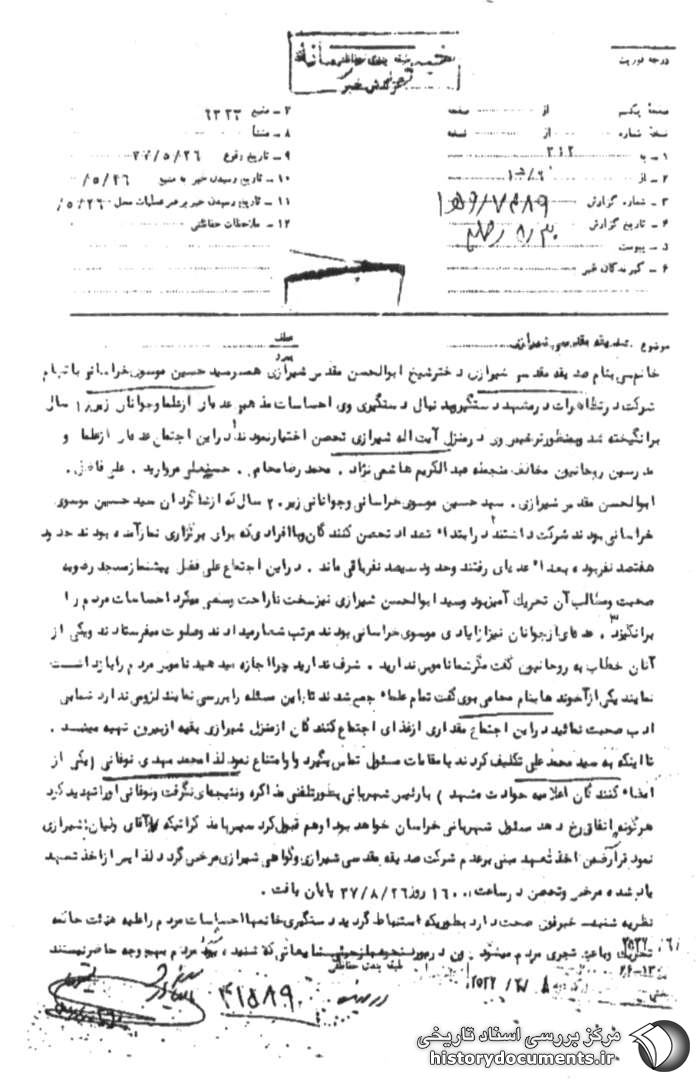 درجه فوریت
طبقه بندی حفاظتی
خیلی محرمانه
گزارش خبر
صفحه یکم از صفحه
نسخه شماره از نسخه
۱ - به ۳۱۲
۲ - از
۳ - شماره گزارش
۴ - تاریخ گزارش
۵ - پیوست
۶ - گیرندگان خبر
۷ - منبع ۶۲۳۳
۸ - منشأ
۹ - تاریخ وقوع ۳۷/۵/۲۶
۱۰ - تاریخ رسیدن خبر به منبع /۵/۲۶
۱۱ - تاریخ رسیدن خبر به رهبر عملیات محل /۵/۲۶
۱۲ - ملاحظات حفاظتی
موضوع صدیقه مقدسی شیرازی
عطف
پیرو
خانمی بنام صدیقه مقدسی شیرازی دختر شیخ ابوالحسن مقدس شیرازی همسر سید حسین موسوی خراسانی باتهام
شرکت در تظاهرات در مشهد دستگیر و بدنبال دستگیری وی احساسات مذهبی عده ای از علما و جوانان زیر ۲۰ سال
برانگیخته شد و بمنظور ترخیص وی در منزل آیت اله شیرازی تحصن اختیار نمودند در این اجتماع عده ای از علما و
مدرسین روحانیون مخالف منجمله عبدالکریم هاشمی نژاد . محمد رضا محامی . حسنعلی مروارید . علی
ابوالحسن مقدس شیرازی . سید حسین موسوی خراسانی و جوانانی زیر ۲۰ سال که از شاگردان سید حسین موسوی
خراسانی بودند شرکت داشتند در ابتداء تعداد تحصن کنندگان و یا افرادی که برای برگزاری نماز آمده بودند حدود
هفتصد نفر بوده بعداً عده ای رفتند و حدود سیصد نفر باقی ماند . در این اجتماع علی پیشنماز مسجد رضویه
صحبت و مطالب آن تحریک آمیز بود و سید ابوالحسن شیرازی نیز سخت ناراحت و سعی میکرد احساسات مردم را
برانگیزد . عده ای از جوانان نیز از ایادی موسوی خراسانی بودند مرتب شعار میدادند و صلوت میفرستادند و یکی از
آنان خطاب به روحانیون گفت مگر شما ناموس ندارید . شرف ندارید چرا اجازه میدهید ناموس مردم را بازداشت
نمایند یکی از آخوندها بنام محامی بوی گفت تمام علماء جمع شدند تا این مسئله را بررسی نمایند لزومی ندارد شما بی
ادب صحبت نمائید در این اجتماع مقداری از غذای اجتماع کنندگان از منزل شیرازی بقیه از بیرون تهیه میشد .
تا اینکه به سید محمد علی تکلیف کردند با مقامات مسئول تماس بگیرد و او امتناع نمود لذا محمد مهدی نوغانی (یکی از
امضاء کنندگان اعلامیه حوادث مشهد ) با رئیس شهربانی بطور تلفنی مذاکره و نتیجه ای نگرفت و نوغانی او را تهدید کرد
هرگونه اتفاقی رخ دهد مسئول شهربانی خراسان خواهد بود او هم قبول کرد سپس با مذاکراتیکه با آقای ونیان شیرازی
نمود قرار شد ضمن اخذ تعهد مبنی بر عدم شرکت صدیقه مقدسی شیرازی و گواهی شیرازی مرخص گردد لذا پس از اخذ تعهد
یاد شده مرخص و تحصن در ساعت ۱۶۰۰ روز ۳۷/۸/۲۶ پایان یافت .
نظریه شنبه . خبر فوق صحت دارد بطوریکه استنباط گردید دستگیری خانمها احساسات مردم را علیه هیئت حاکمه
تحریک و باعث تجری مردم میشود . مردم بهیچ وجه حاضر نیستند
طبقه بندی حفاظتی
۴۱۵۸۹
مرکز بررسی اسناد تاریخی
historydocuments.ir